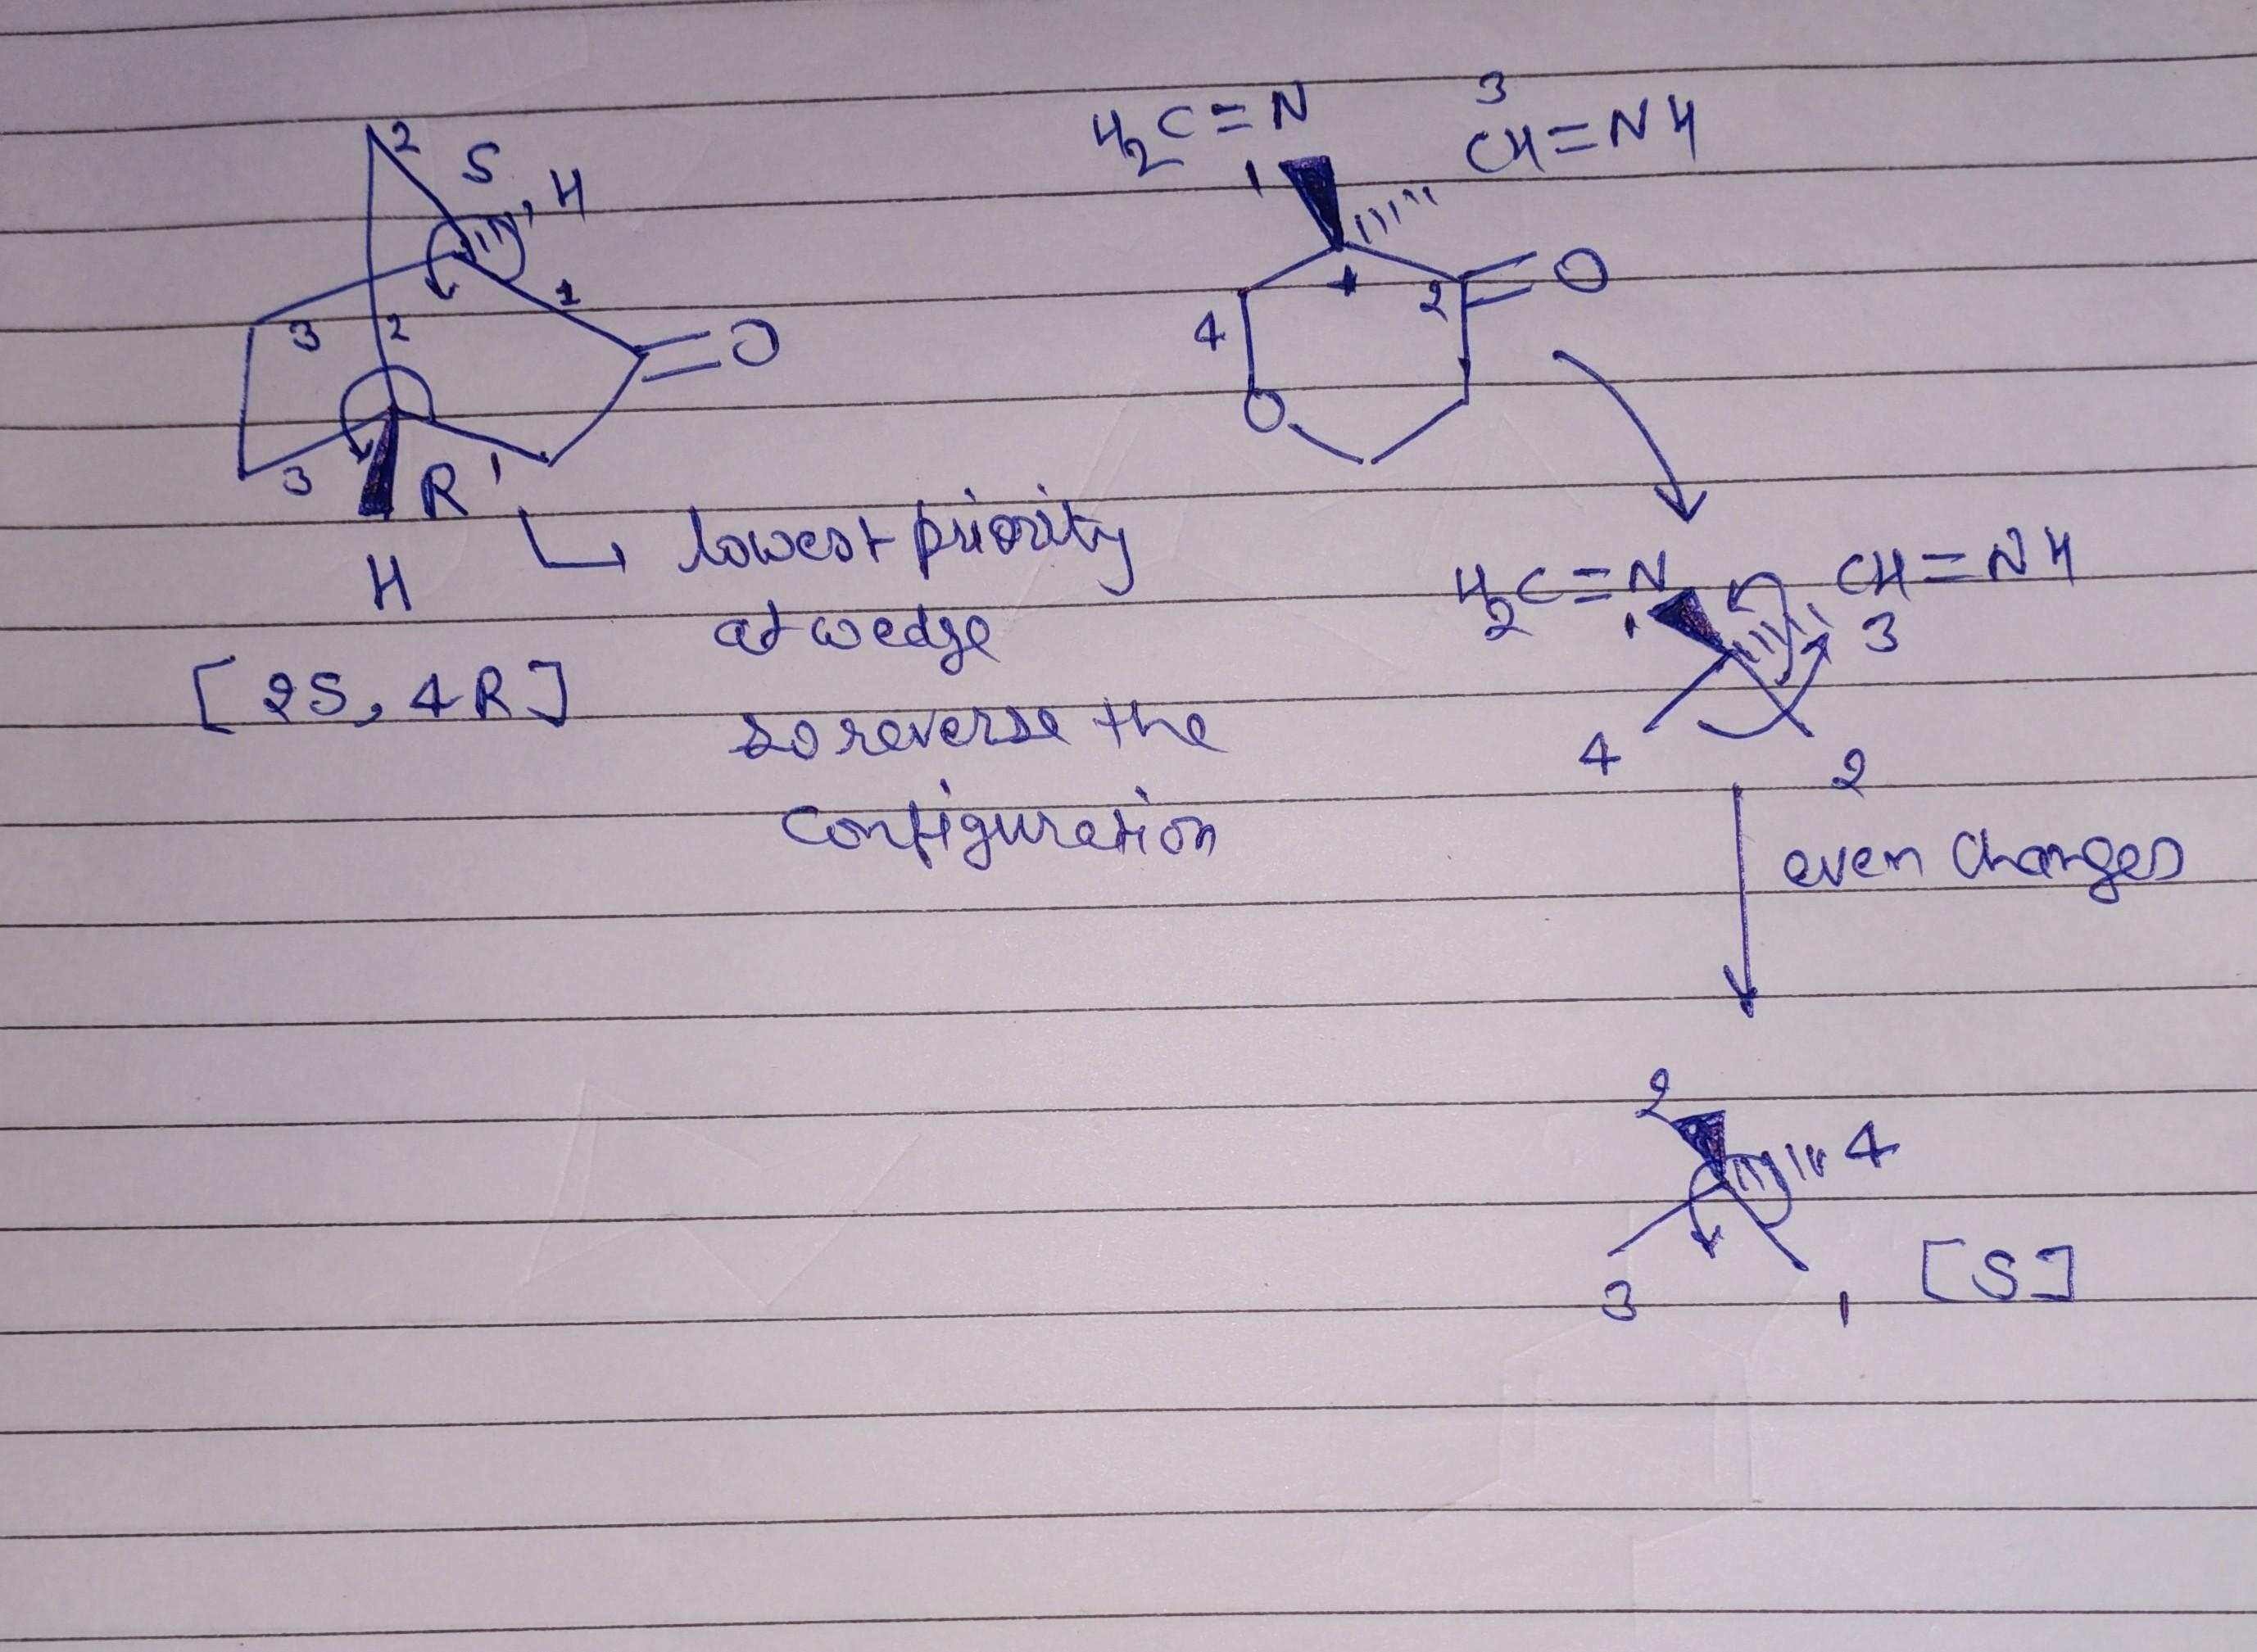 2
S
H
3
2
1
O
3
R
1
H
lowest priority
at wedge
so reverse the
configuration
[2S, 4R]
H2C=N
3
CH=NH
1
4
2
O
O
H2C=N
CH=NH
1
3
4
2
even changes
2
4
3
1
[S]